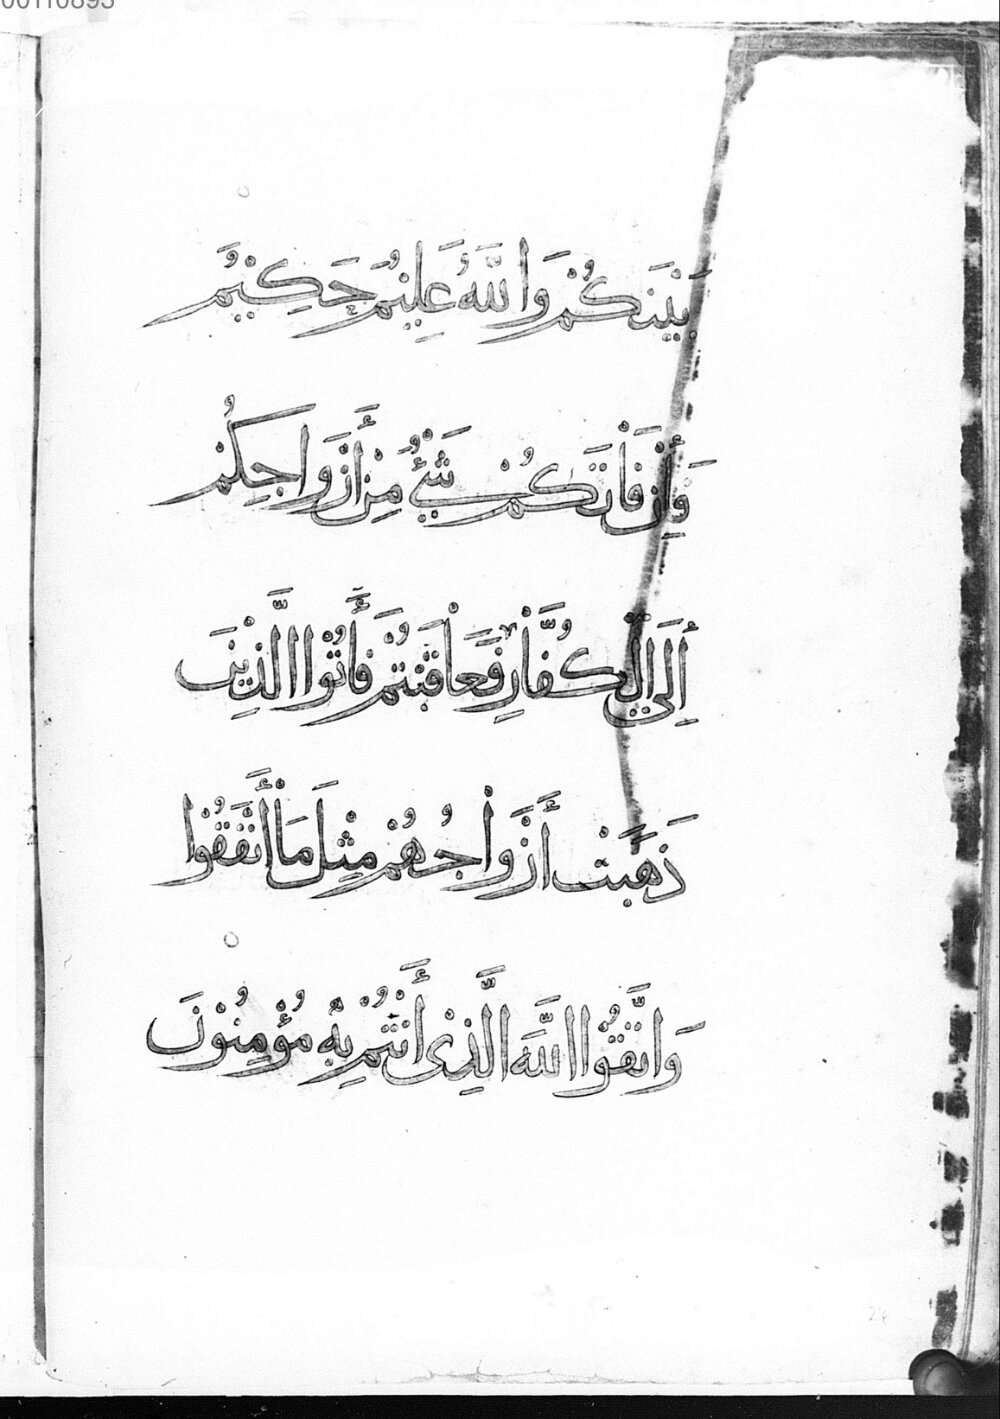 00110893
بَيْنَكُمْ وَاللَّهُ عَلِيْمٌ حَكِيْمٌ
وَإِنْ فَاْتَكُمْ شَيْءٌ مِنْ أَزْوَاجِكُمْ
إِلَى الْكُفَّارِ فَعَاْقَبْتُمْ فَأْتُوْا الَّذِيْنَ
ذَهَبَتْ أَزْوَاْجُهُمْ مِثْلَ مَاْ أَنْفَقُوْا
وَاتَّقُوْا اللَّهَ الَّذِيْ أَنْتُمْ بِهِ مُؤْمِنُوْنَ
24